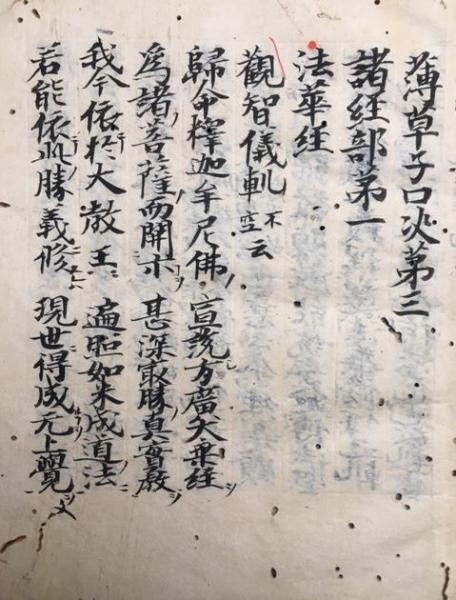 薄草子口决第三
諸経部第一
法華経
觀智儀軌不空云
歸命釋迦牟尼佛 宣說方廣大乗経
為諸菩薩而開示 甚深最勝真實教
我今依於大教王 遍照如来成道法
若能依此勝義修 現世得成无上覺文